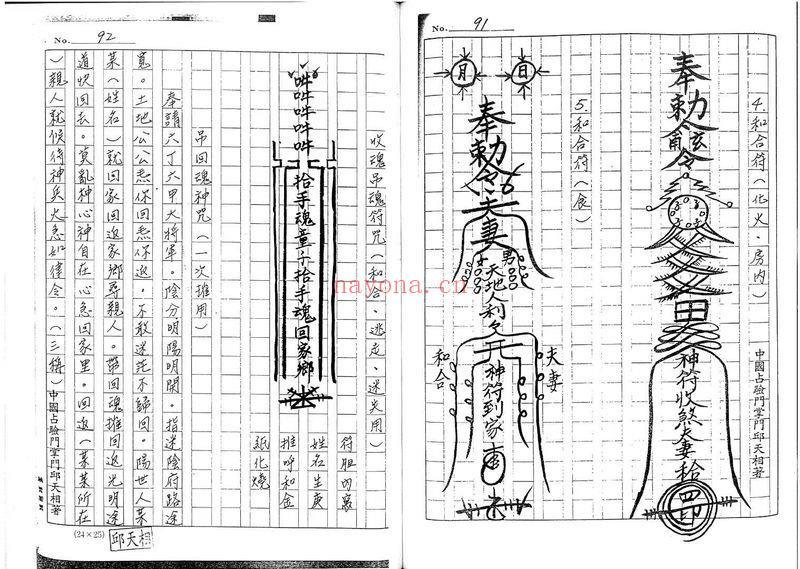 No. 91
4.和合符(化火、房內)
奉勅令
神符收煞夫妻
印
中國占驗門掌門邱天相著
5.和合符(食)
日
月
奉勅令夫妻
男
女
天地人和
神符到家
夫妻
和合
No. 92
收魂吊魂符咒(和合、迷走、迷失用)
拾手魂童子拾手魂回家鄉
符胆內寫
姓名生庚
推呼和金
紙化燒
吊回魂神咒(一次推用)
奉請六丁六甲大將軍。陰分明陽明開。指迷陰府路途
寬。土地公公悉你回悉你返。不敢迷茫不歸回。陽世人某
某(姓名)就回家回返家鄉尋親人。帶回魂推回返光明途
道快回去。莫亂神心神自在心急回家里。回返(某某所在
)親人就候待神兵火急如律令。(三稱)中國占驗門掌門邱天相著
(24×25)
邱天相
nayona.cn